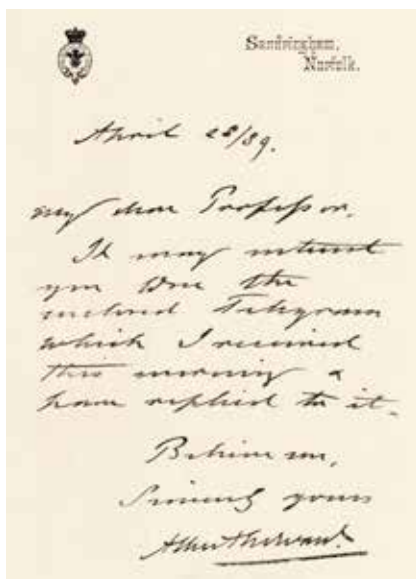 Sandringham,
Norfolk.
April 28/89.
My dear Professor,
It may interest
you to see the
enclosed Telegram
which I received
this morning &
have replied to it.
Believe me,
Sincerely yours
Albert Edward.